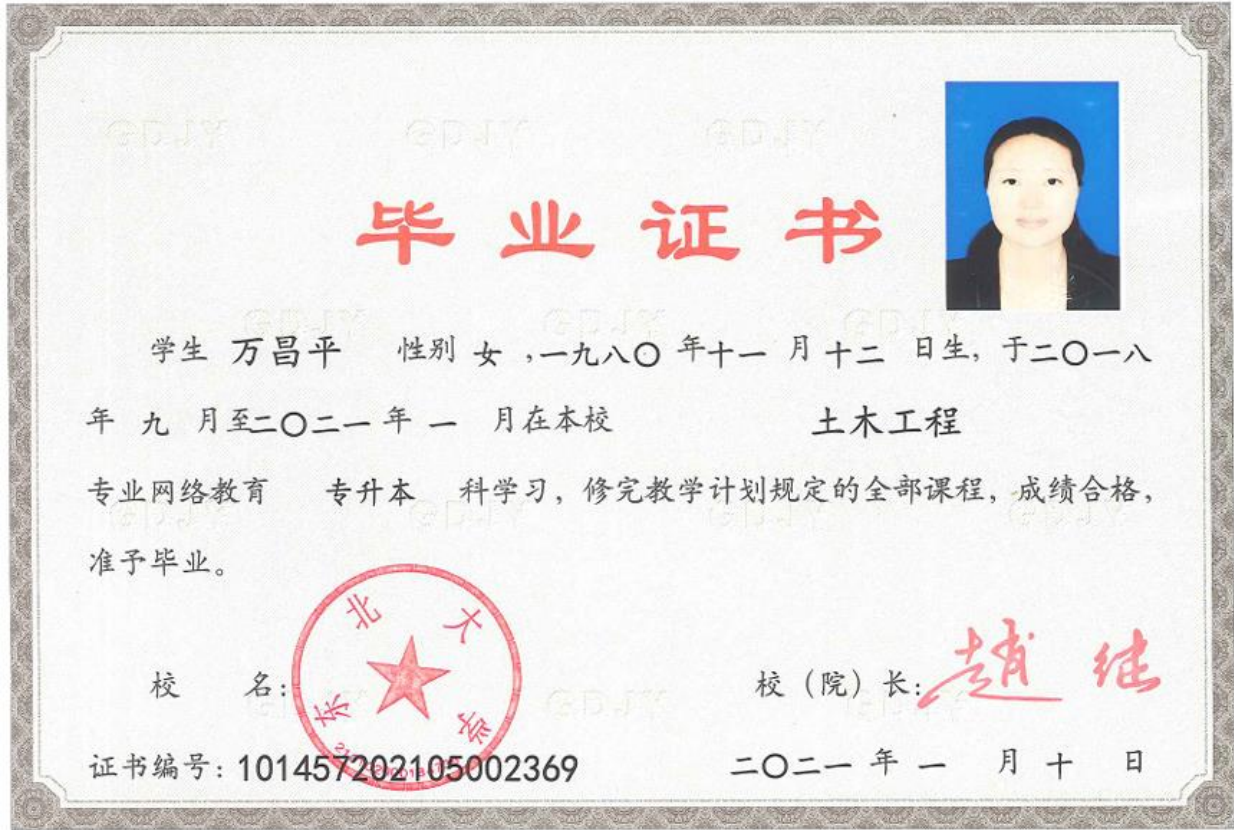 毕业证书
学生 万昌平 性别 女 ,一九八〇 年十一 月 十二 日生, 于二〇一八
年 九 月至二〇二一 年 一 月在本校 土木工程
专业网络教育 专升本 科学习, 修完教学计划规定的全部课程, 成绩合格,
准予毕业。
校 名: 东北大学
校（院）长: 赵继
证书编号: 101457202105002369 二〇二一 年 一 月 十 日